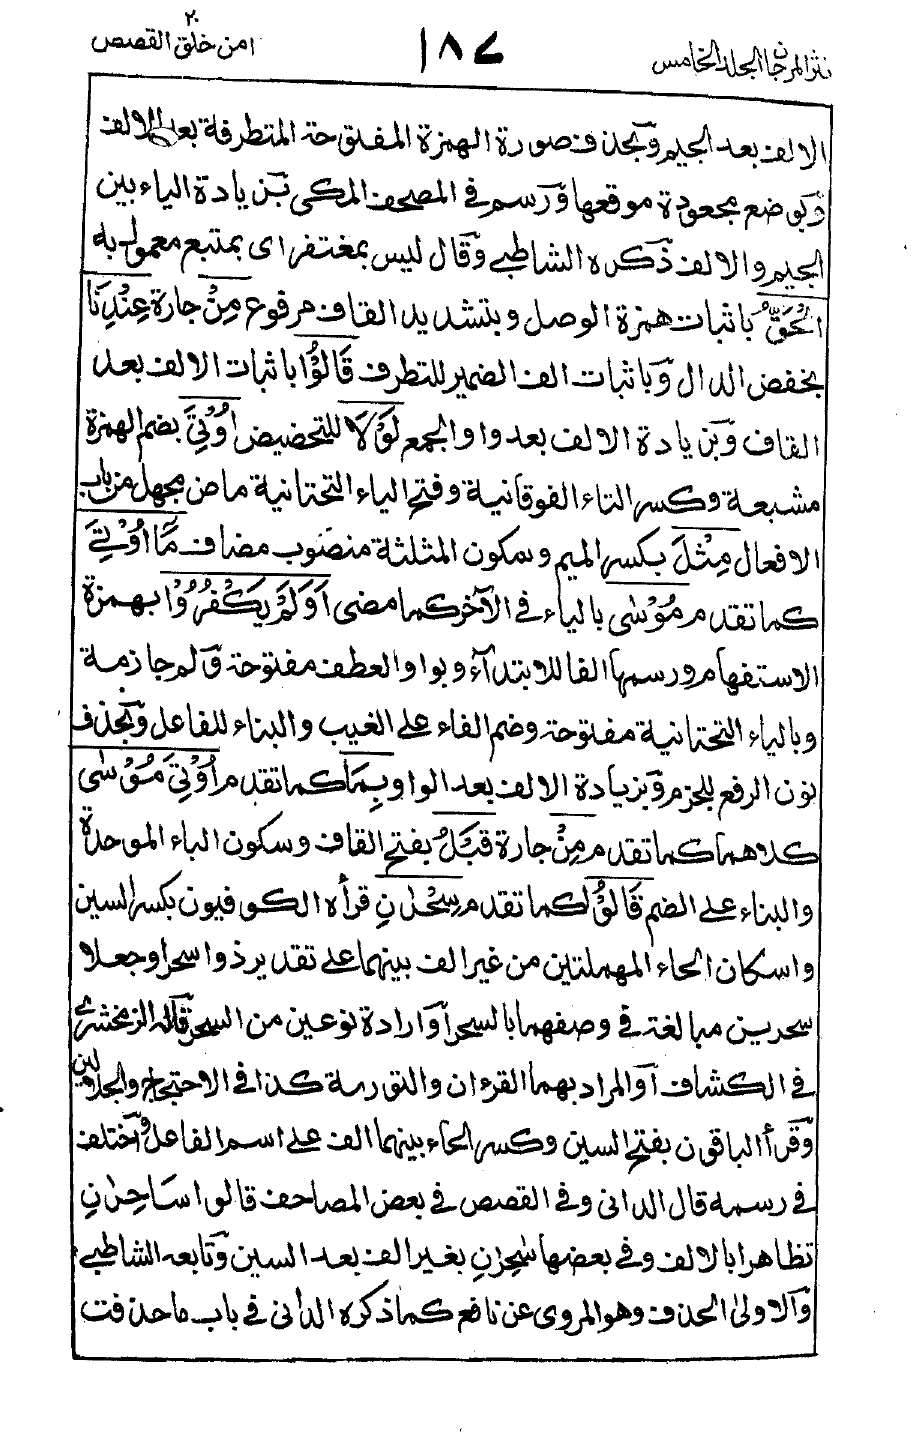 نثر المرجان المجلد الخامس
١٨٧
٢٠
امن خلق القصص
الالف بعد الجيم وبحذف صورة الهمزة المفتوحة المتطرفة بعد الالف
وبوضع مجعودة موقعها ورسم في المصحف المكى بزيادة الياء بين
الجيم والالف ذكره الشاطبي وقال ليس بمغتفر اى بمتبع معمول به
الْحَقُّ باثبات همزة الوصل وبتشديد القاف مرفوع مِنْ جارة عِنْدِنَا
بخفض الدال وباثبات الف الضمير للتطرف قَالُوْا باثبات الالف بعد
القاف وبزيادة الالف بعد واو الجمع لَوْلَا للتحضيض اُوْتِيَ بضم الهمزة
مشبعة وكسر التاء الفوقانية وفتح الياء التحتانية ماض مجهل من باب
الافعال مِثْلَ بكسر الميم وسكون المثلثة منصوب مضاف مَا اُوْتِيَ
كما تقدم مُوْسٰى بالياء في الآخر كما مضى اَوَلَمْ يَكْفُرُوْا بهمزة
الاستفهام ورسمها الفا للابتداء وبواو العطف مفتوحة ولم جازمة
وبالياء التحتانية مفتوحة وضم الفاء على الغيب والبناء للفاعل وبحذف
نون الرفع للجزم وبزيادة الالف بعد الواو بِمَا كما تقدم اُوْتِيَ مُوْسٰى
كلاهما كما تقدم مِنْ جارة قَبْلُ بفتح القاف وسكون الباء الموحدة
والبناء على الضم قَالُوْا كما تقدم سِحْرٰنِ قرأه الكوفيون بكسر السين
واسكان الحاء المهملتين من غير الف بينهما على تقدير ذوا سحر او جعلا
سحرين مبالغة في وصفهما بالسحر او ارادة نوعين من السحر قاله الزمخشرى
في الكشاف او المراد بهما القرءان والتورىة كذا في الاحتجاج والجلالين
وقرأ الباقون بفتح السين وكسر الحاء بينهما الف على اسم الفاعل واختلف
في رسمه قال الدانى وفى القصص في بعض المصاحف قالوا سَاحِرٰنِ
تظاهرا بالالف وفي بعضها سٰحِرٰنِ بغير الف بعد السين وتابعه الشاطبي
والاولىٰ الحذف وهو المروى عن نافع كما ذكره الدانى في باب ما حذفت